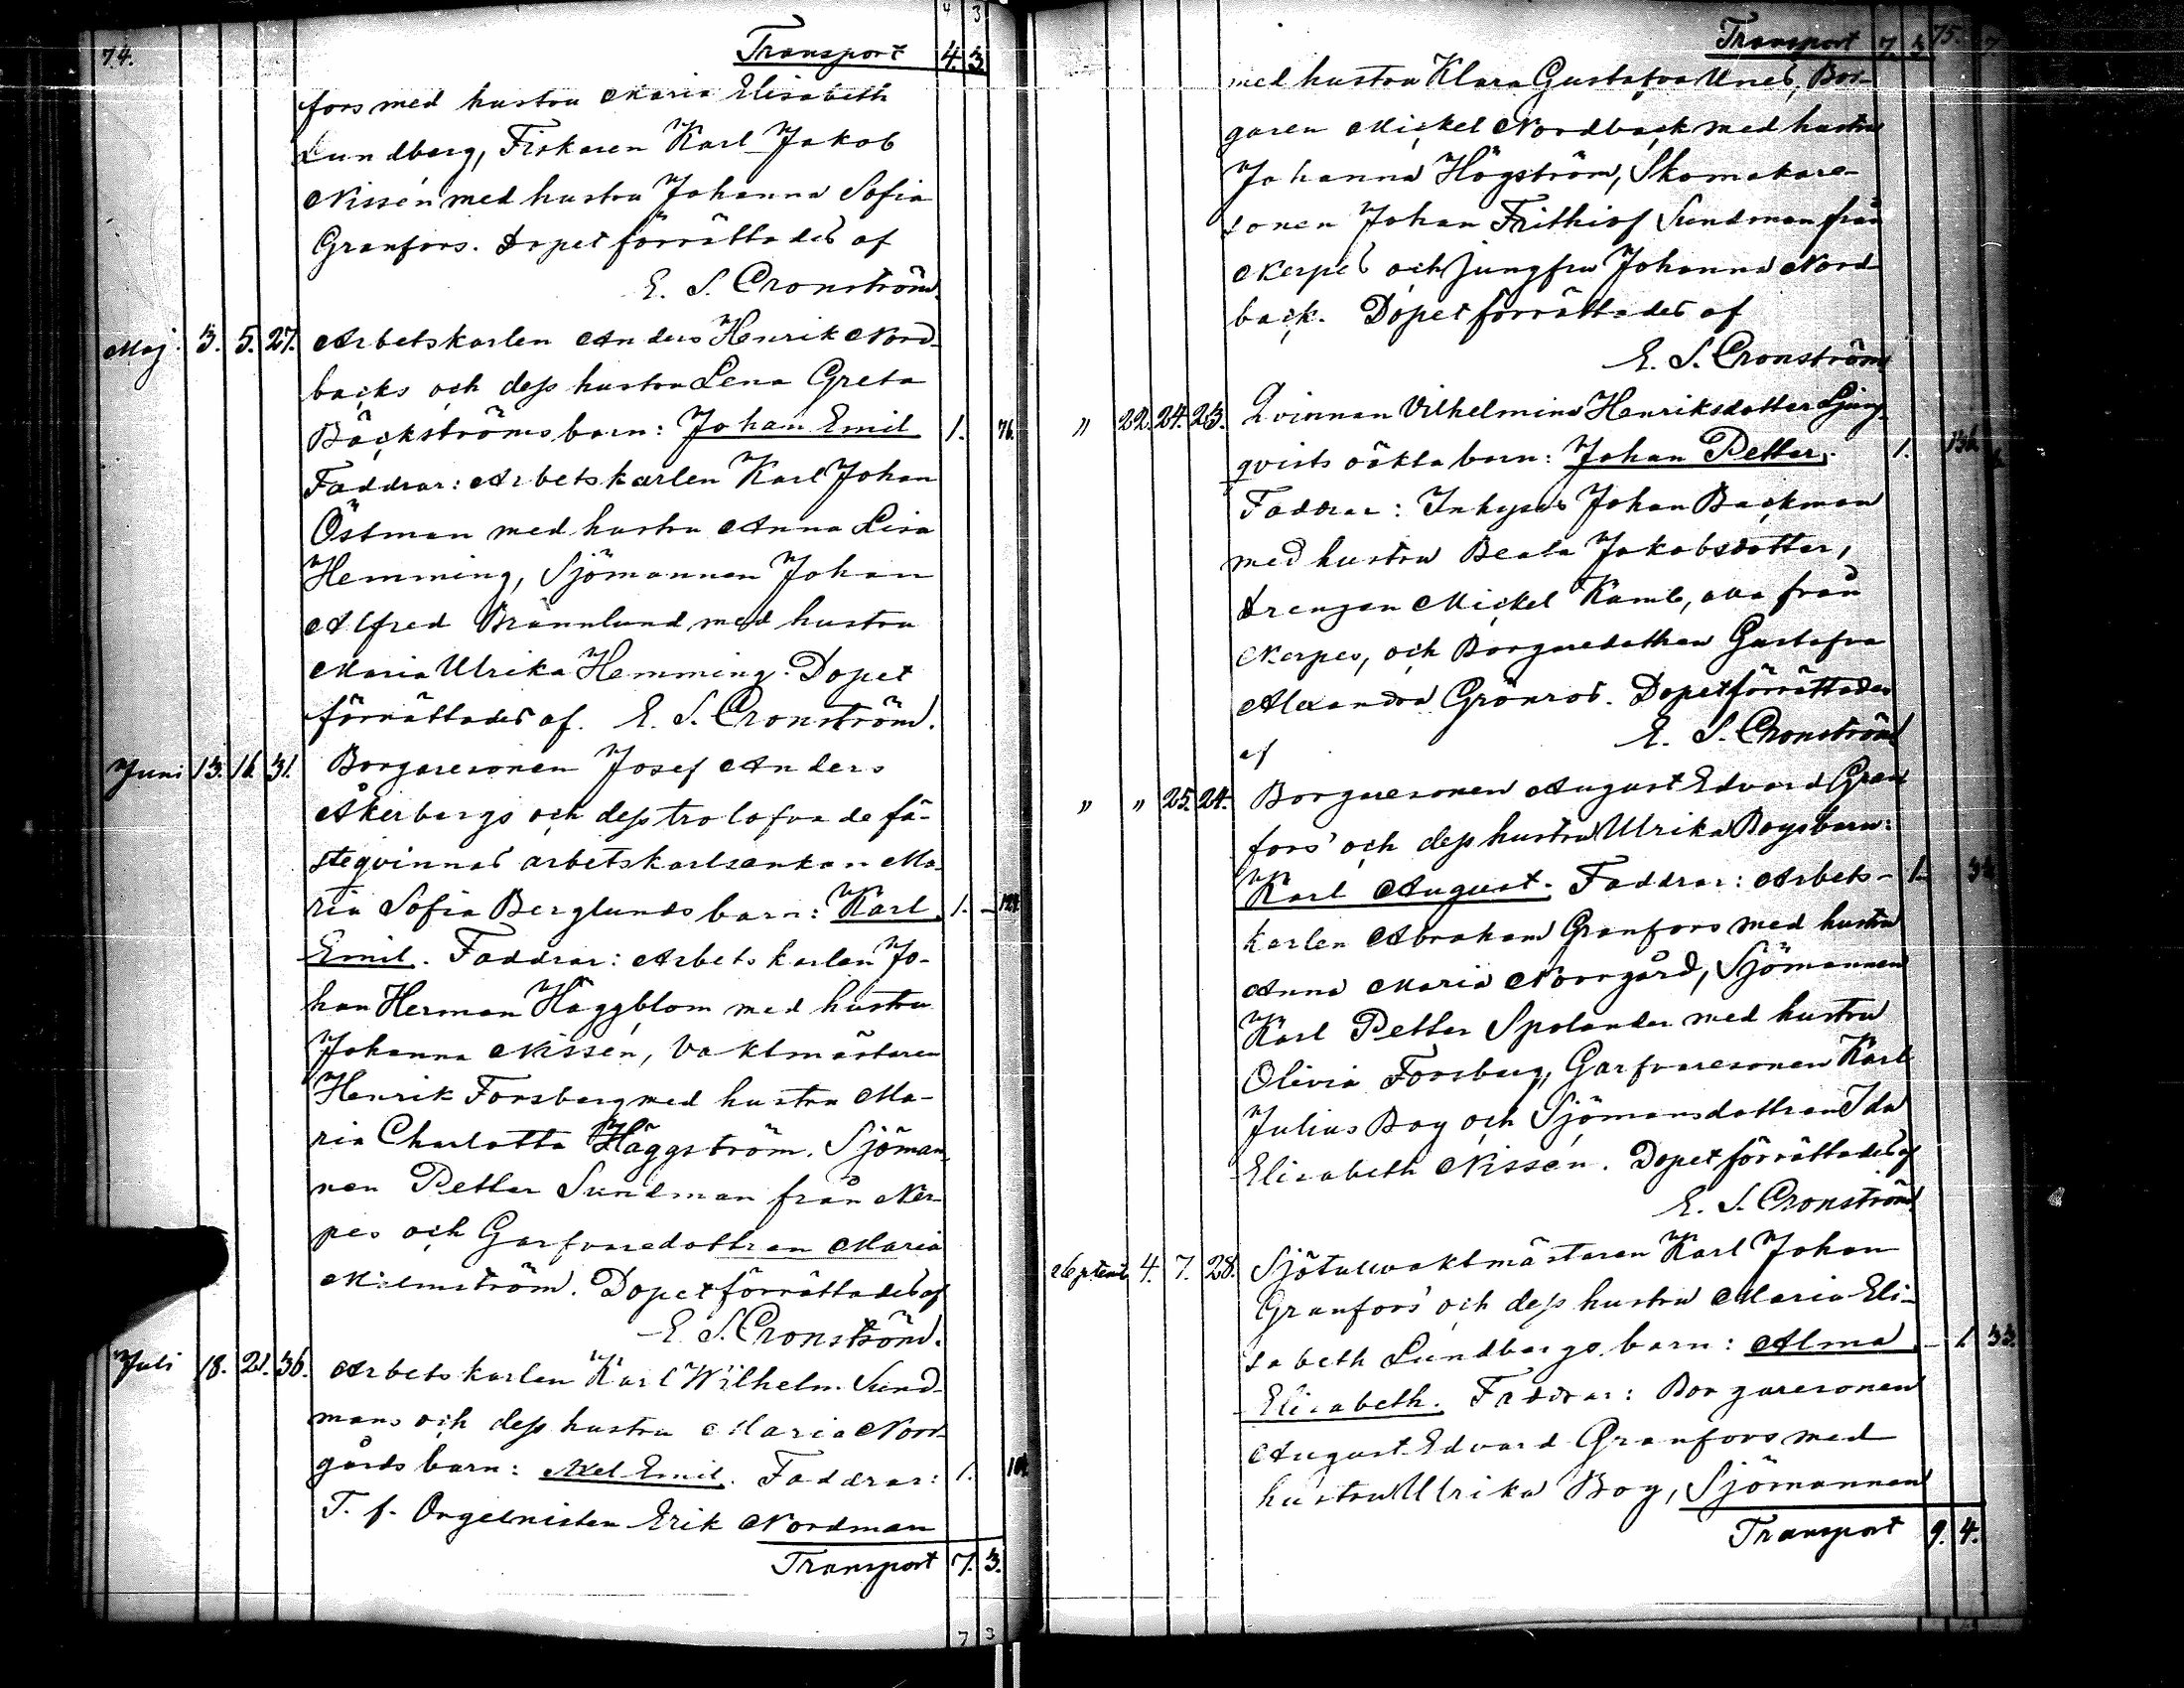 74.
Transport 4. 3.
fors med hustru Maria Elisabeth
Lundberg, Fiskaren Karl Jakob
Nissén med hustru Johanna Sofia
Granfors. Dopet förrättades af
E. S. Cronström.
Maj 3. 5. 27. Arbetskarlen Anders Henrik Nord-
backs och dess hustru Lena Greta
Bäckströms barn: Johan Emil 1. 76.
Faddrar: Arbetskarlen Karl Johan
Östman med hustru Anna Lisa
Hemming, Sjömannen Johan
Alfred Brännlund med hustru
Maria Ulrika Hemming. Dopet
förrättades af. E. S. Cronström.
Juni 13. 16. 31. Borgaresonen Josef Anders
Åkerbergs och dess trolofvade fä-
steqvinnas arbetskarlsenkan Ma-
ria Sofia Berglunds barn: Karl 1.
Emil. Faddrar: Arbetskarlen Jo-
han Herman Häggblom med hustru
Johanna Nissén, Vaktmästaren
Henrik Forsberg med hustru Ma-
ria Charlotta Häggström. Sjöman-
nen Petter Sundman från Ner-
pes och Garfvaredottren Maria
Malmström. Dopet förrättades af
E. S. Cronström.
Juli 18. 21. 36. Arbetskarlen Karl Wilhelm Sund-
mans och dess hustru Maria Norr-
gårds barn: Axel Emil. Faddrar: 1.
T. f. Orgelnisten Erik Nordman
Transport 7. 3.
75.
Transport 7. 3.
med hustru Klara Gustafva Unes, Bor-
garen Mickel Nordback med hustru
Johanna Högström, Skomakare-
sonen Johan Frithiof Sundman från
Nerpes och jungfru Johanna Nord-
back. Dopet förrättades af
E. S. Cronström
" 22. 24. 23. Qvinnan Vilhelmina Henriksdotter Ljung-
qvists oäkta barn: Johan Petter. 1.
Faddrar: Inhyses Johan Backman
med hustru Beata Jakobsdotter,
drengen Mickel Kamb, alla från
Nerpes, och Borgaredottren Gustafva
Alexandra Grönros. Dopet förrättades
af E. S. Cronström
" " 25. 24. Borgaresonen August Edvard Gran-
fors' och dess hustru Ulrika Boys barn:
Karl August. Faddrar: Arbets- 1.
karlen Abraham Granfors med hustru
Anna Maria Norrgård, Sjömannen
Karl Petter Spolander med hustru
Olivia Forsberg, Garfvaresonen Karl
Julius Boy och Sjömansdottren Ida
Elisabeth Nissén. Dopet förrättades af
E. S. Cronström
Septemb 4. 7. 28. Sjötullvaktmästaren Karl Johan
Granfors' och dess hustru Maria Eli-
sabeth Lundbergs barn: Alma 1. 33.
Elisabeth. Faddrar: Borgaresonen
August Edvard Granfors med
hustru Ulrika Boy, Sjömannen
Transport 9. 4.